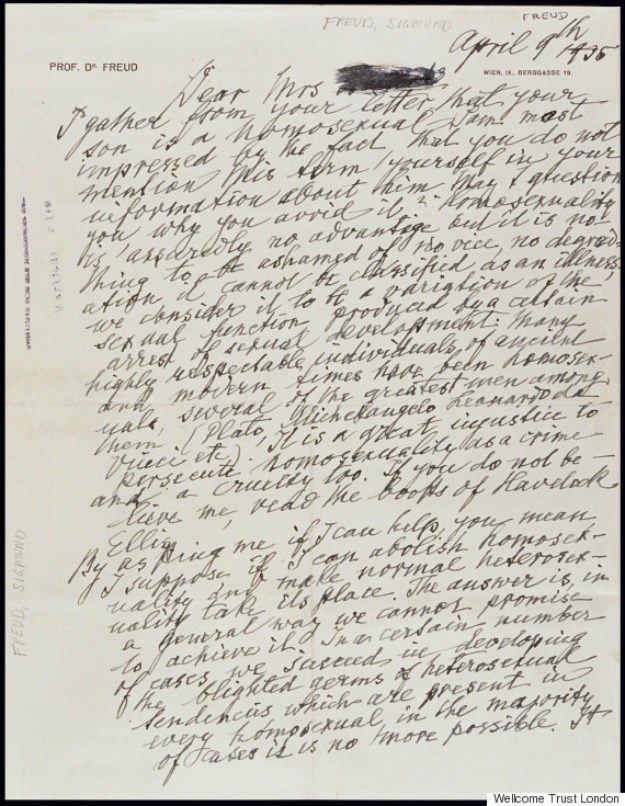 FREUD, SIGMUND
FREUD
April 9th 1935
PROF. DR. FREUD
WIEN, IX., BERGGASSE 19.
Dear Mrs
I gather from your letter, that your
son is a homosexual. I am most
impressed by the fact, that you do not
mention this term yourself in your
information about him. May I question
you why you avoid it? Homosexuality
is assuredly no advantage but it is no-
thing to be ashamed of, no vice, no degrad-
ation, it cannot be classified as an illness;
we consider it to be a variation of the
sexual function, produced by a certain
arrest of sexual development. Many
highly respectable individuals of ancient
and modern times have been homosex-
uals, several of the greatest men among
them (Plato, Michelangelo, Leonardo da
Vinci etc). It is a great injustice to
persecute homosexuality as a crime
and a cruelty too. If you do not be-
lieve me, read the books of Havelock
Ellis.
By asking me if I can help, you mean
I suppose if I can abolish homosex-
uality and make normal heterosex-
uality take its place. The answer is, in
a general way we cannot promise
to achieve it. In a certain number
of cases we succeed in developing
the blighted germs of heterosexual
tendencies which are present in
every homosexual, in the majority
of cases it is no more possible. It
FREUD, SIGMUND
Wellcome Trust London